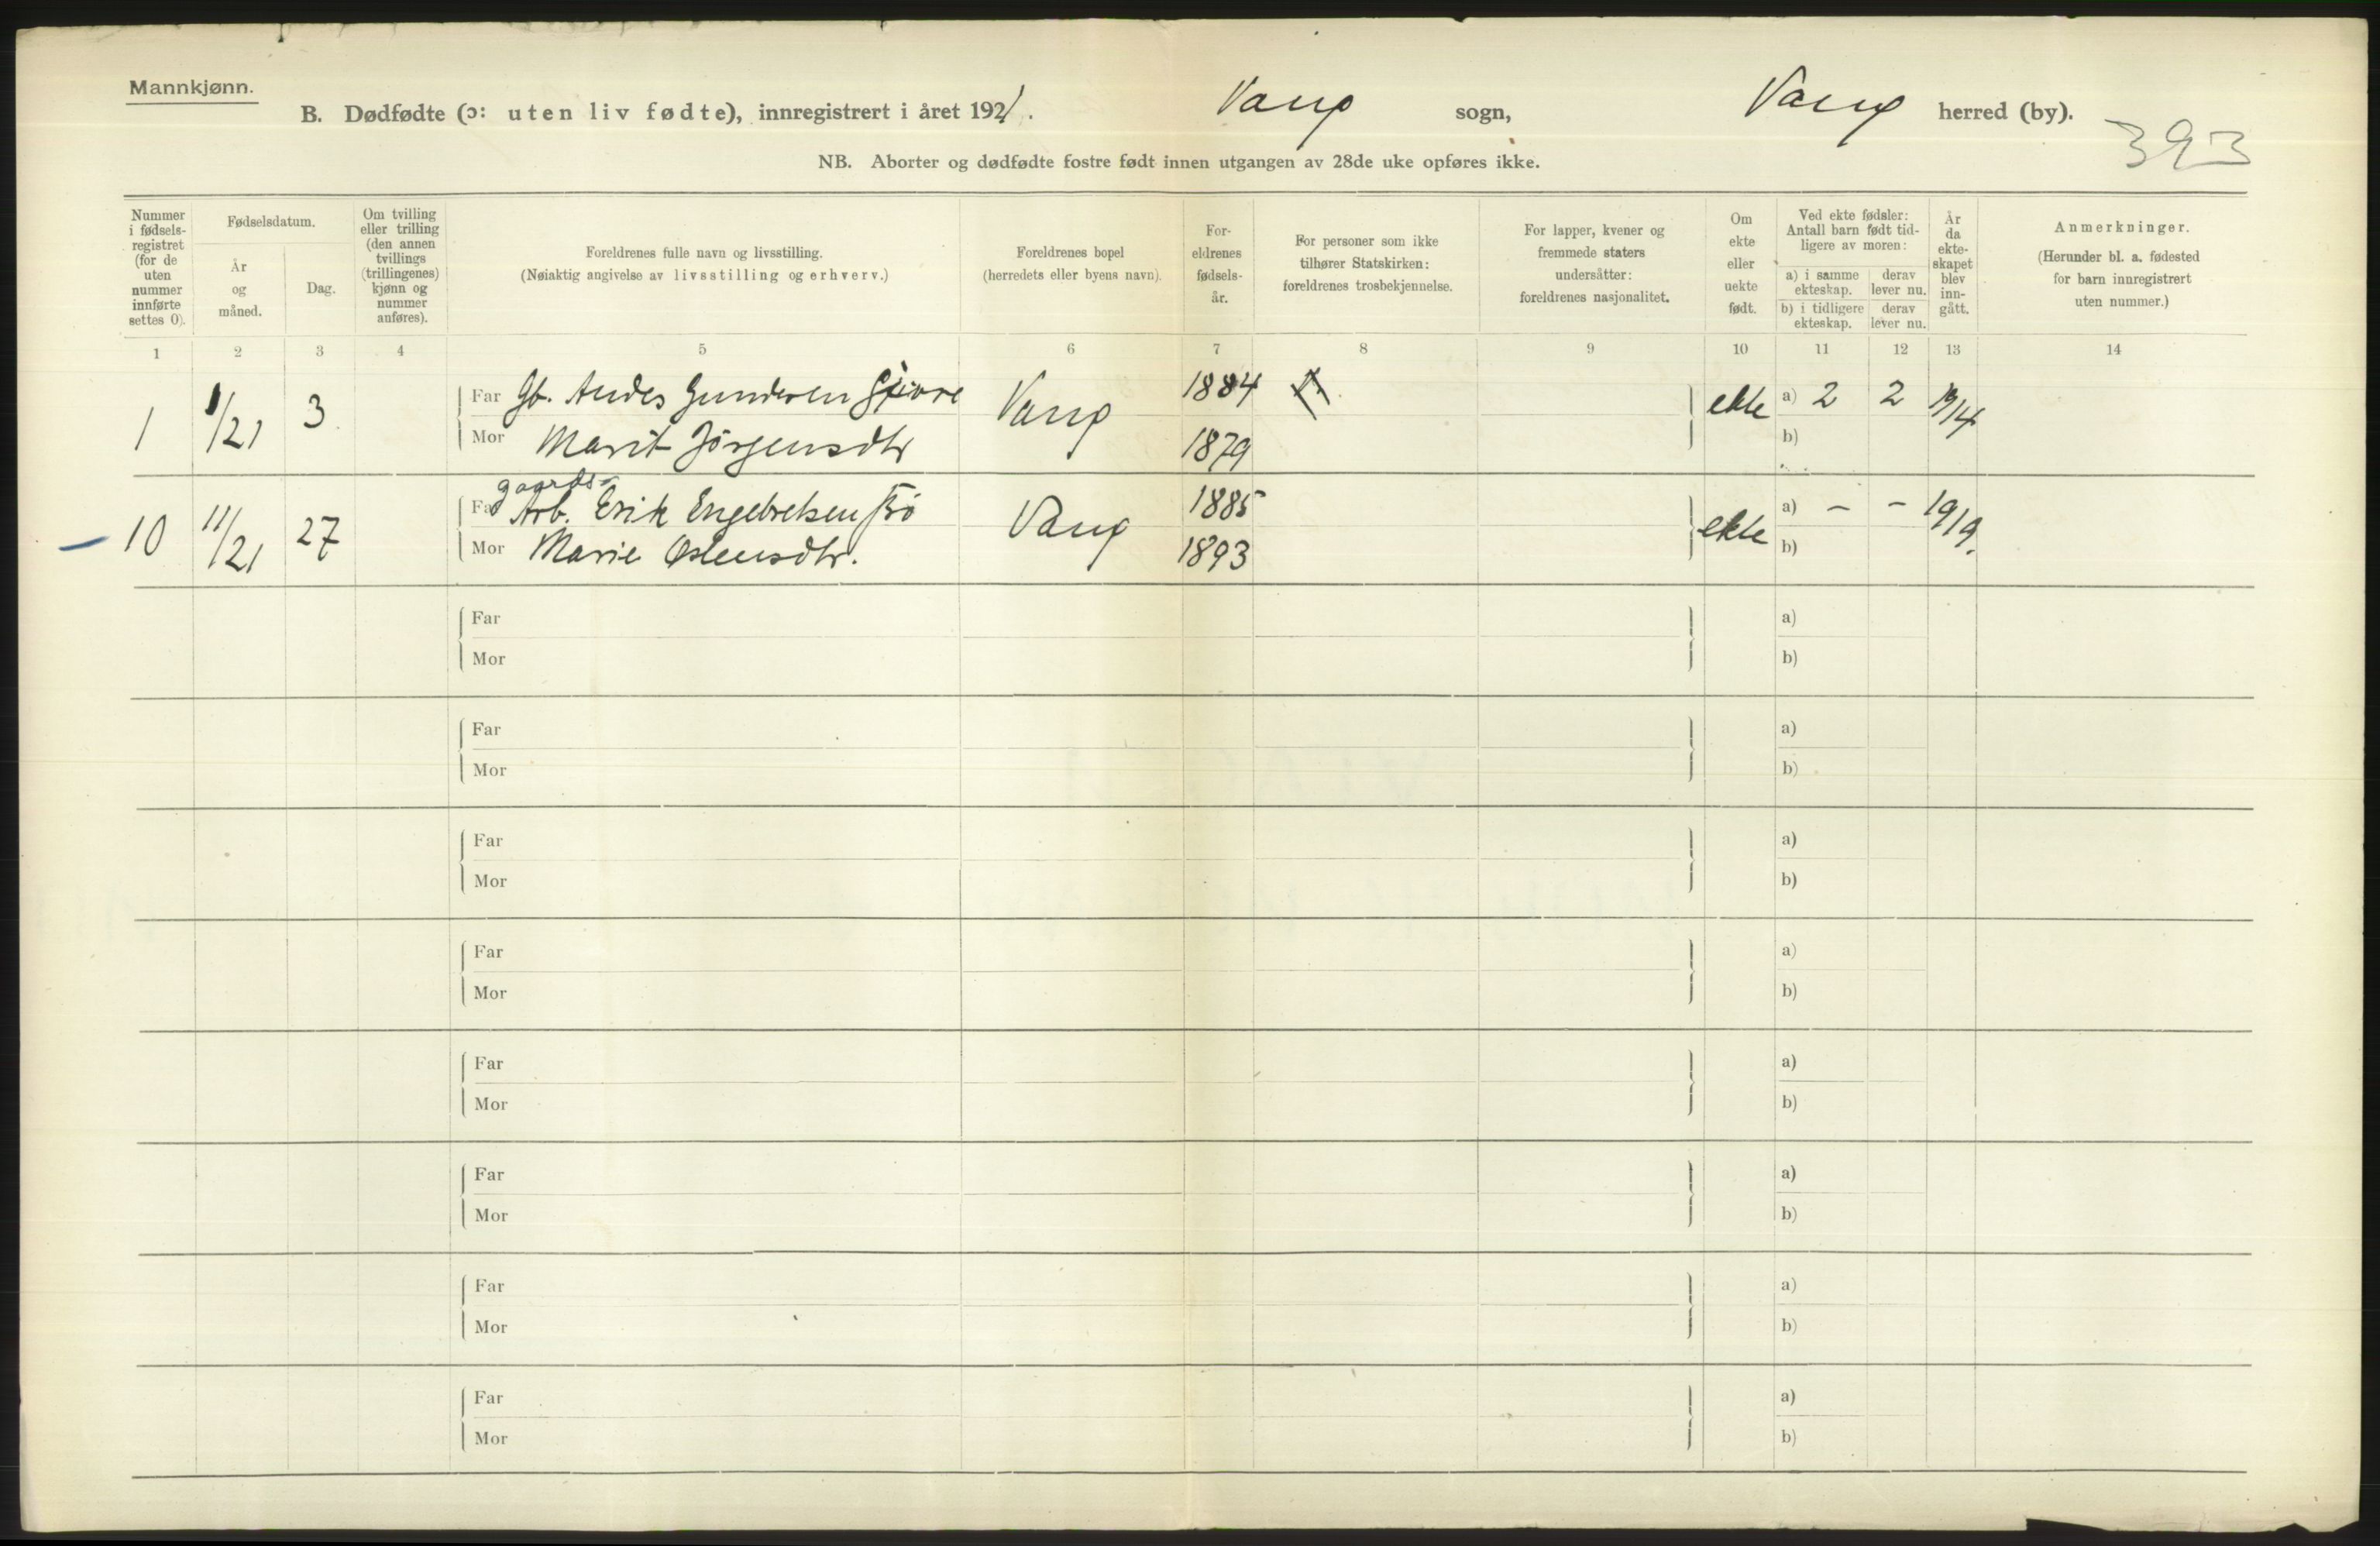 Mannkjønn.
B. Dødfødte (ɔ: uten liv fødte), innregistrert i året 1921. Vang sogn, Vang herred (by).
393
NB. Aborter og dødfødte fostre født innen utgangen av 28de uke opføres ikke.
Nummer i fødsels-registret (for de uten nummer innførte settes 0).
Fødselsdatum.
År og måned.
Dag.
Om tvilling eller trilling (den annen tvillings (trillingenes) kjønn og nummer anføres).
Foreldrenes fulle navn og livsstilling.
(Nøiaktig angivelse av livsstilling og erhverv.)
Foreldrenes bopel
(herredets eller byens navn).
For-eldrenes fødsels-år.
For personer som ikke tilhører Statskirken: foreldrenes trosbekjennelse.
For lapper, kvener og fremmede staters undersåtter: foreldrenes nasjonalitet.
Om ekte eller uekte født.
Ved ekte fødsler: Antall barn født tid-ligere av moren:
a) i samme ekteskap. derav lever nu.
b) i tidligere ekteskap. derav lever nu.
År da ekte-skapet blev inn-gått.
Anmerkninger.
(Herunder bl. a. fødested for barn innregistrert uten nummer.)
1 2 3 4 5 6 7 8 9 10 11 12 13 14
1 1/21 3 Far Gb. Andes Gundersen Vang 1884 ekte a) 2 2 19/14
Mor Marit Jörgensdtr 1879 b)
gaards-
10 11/21 27 Far Arb. Erik Engebretsen Vang 1885 ekte a) – – 1919.
Mor Marie Ostensdtr. 1893 b)
Far a)
Mor b)
Far a)
Mor b)
Far a)
Mor b)
Far a)
Mor b)
Far a)
Mor b)
Far a)
Mor b)
Far a)
Mor b)
Far a)
Mor b)